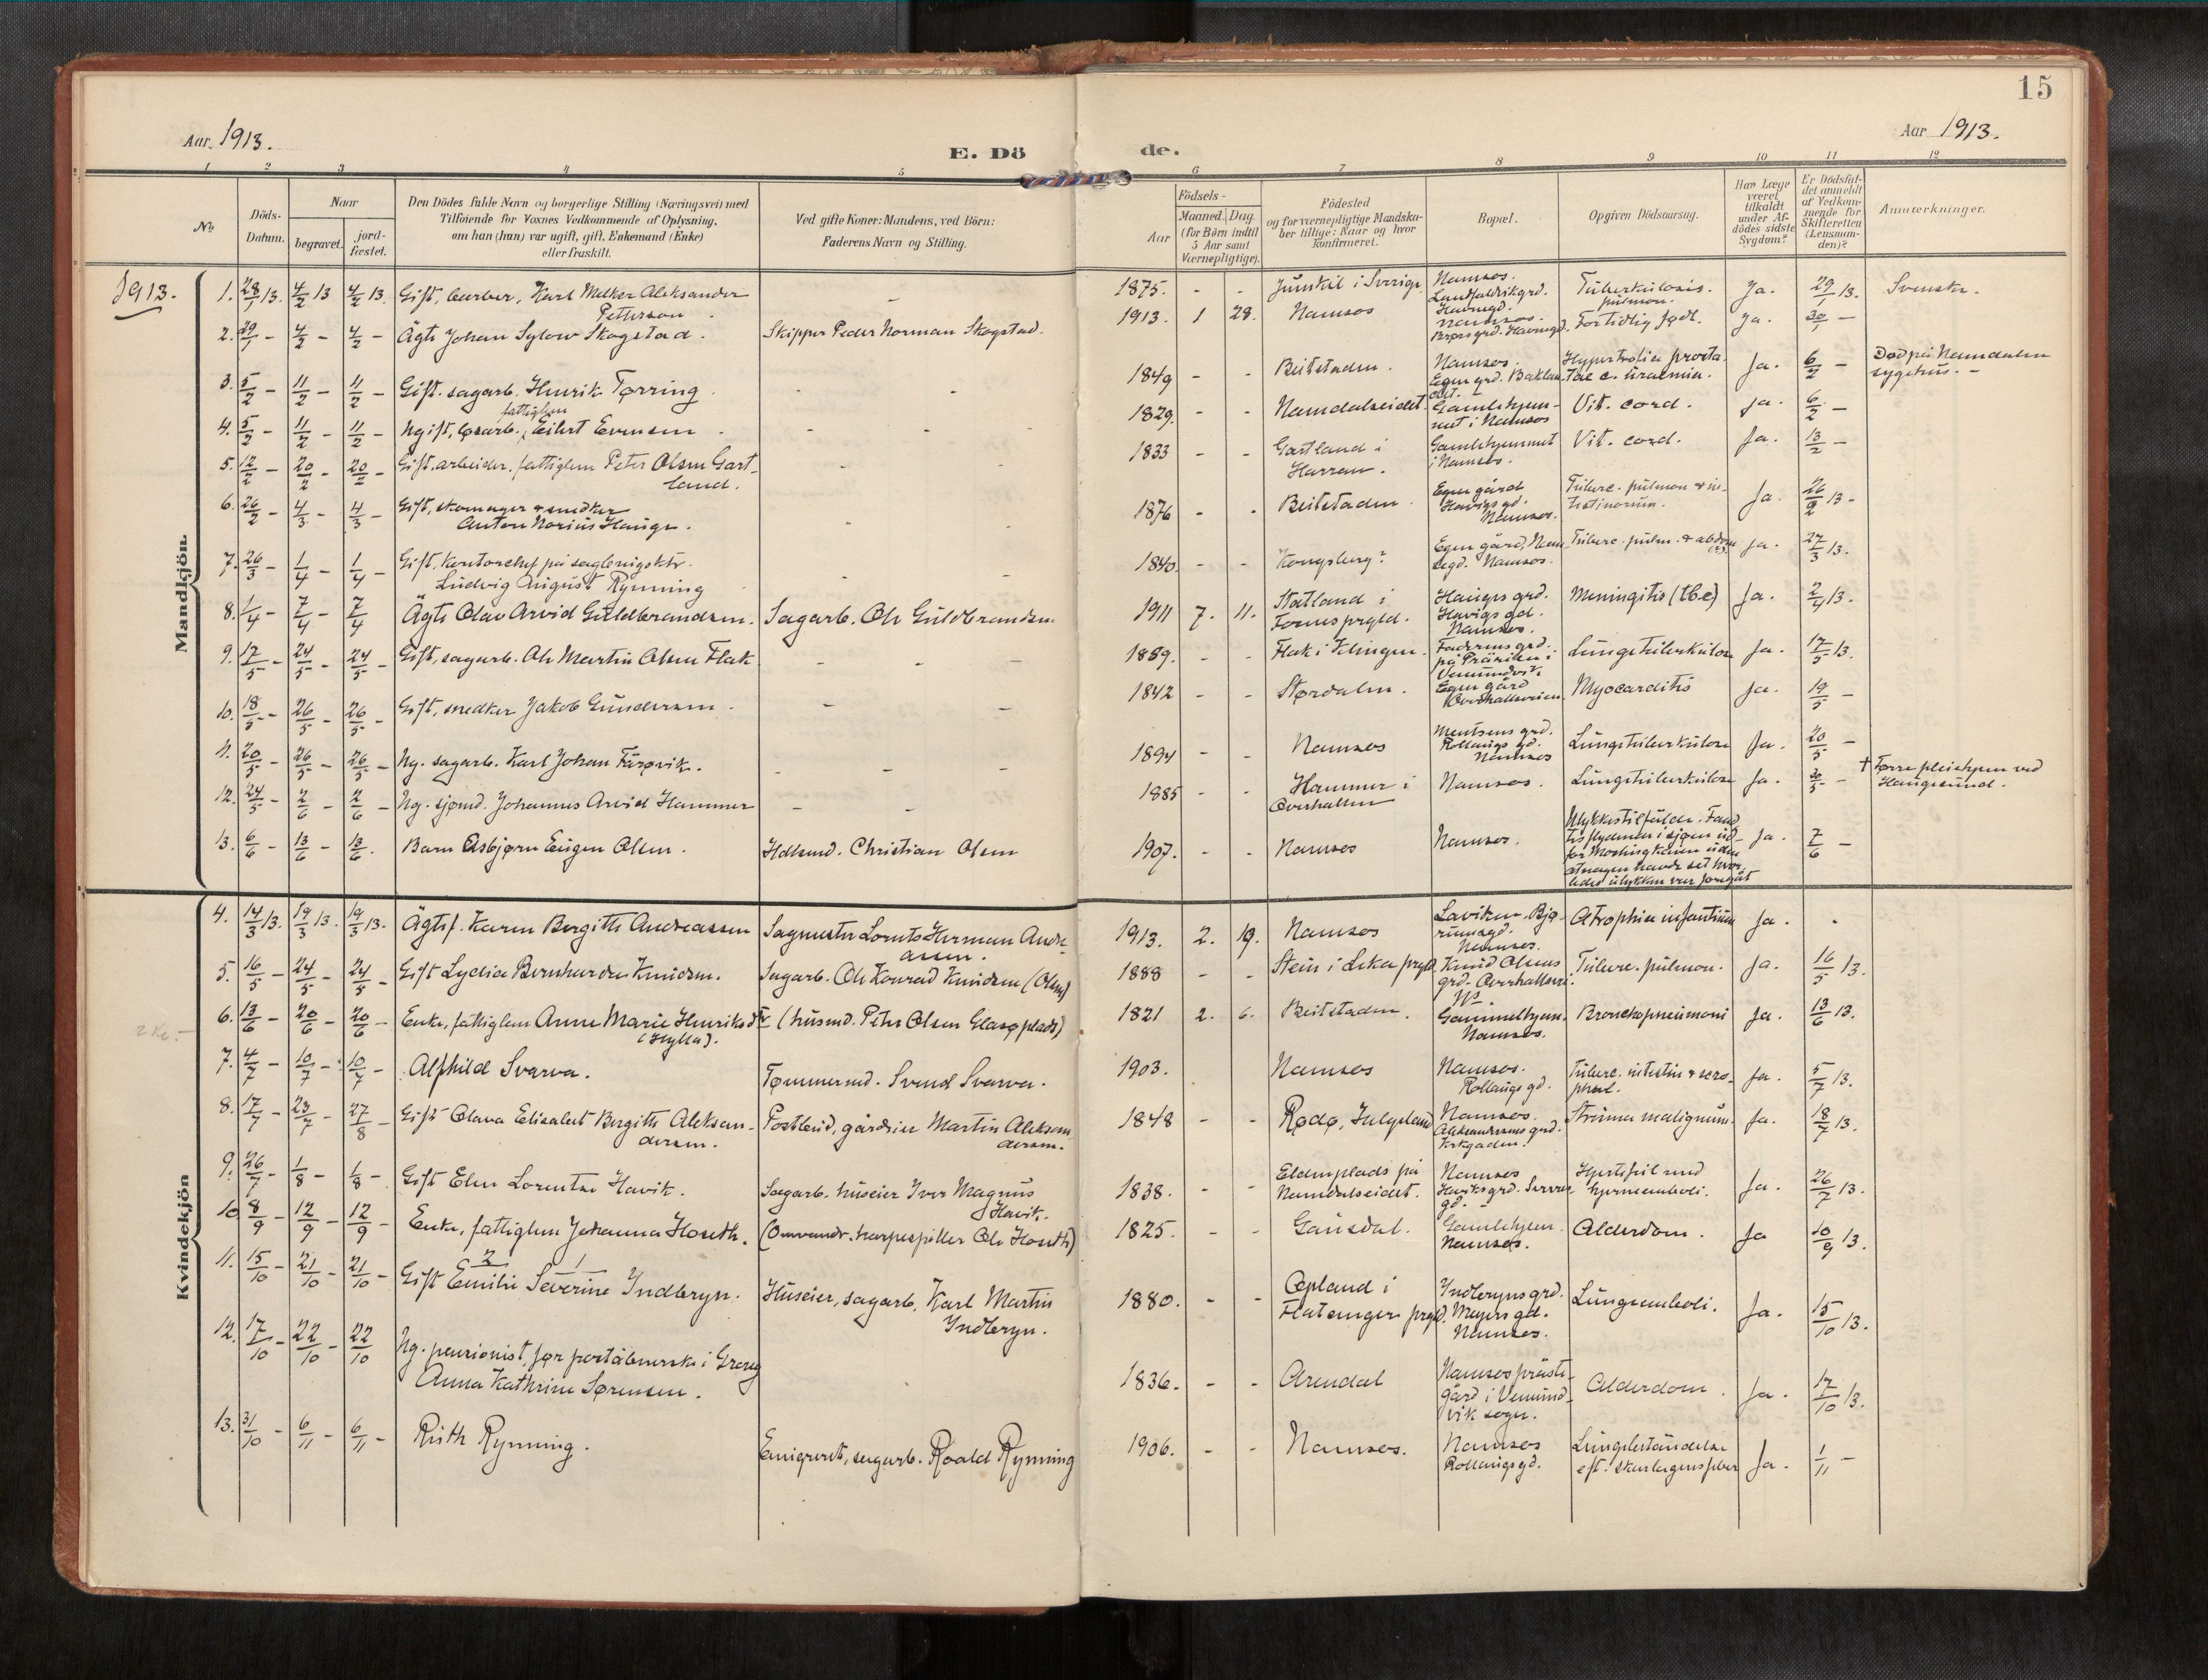 15
Aar 1913.
Aar 1913.
E. Dö de.
1 2 3 4 5 6 7 8 9 10 11 12
No
Döds-Datum.
Naar
begravet.
jord-fæstet.
Den Dödes fulde Navn og borgerlige Stilling (Næringsvei) med
Tilföiende for Voxnes Vedkommende af Oplysning,
om han (hun) var ugift, gift, Enkemand (Enke)
eller fraskilt.
Ved gifte Koner: Mandens, ved Börn:
Faderens Navn og Stilling.
Födsels-
Aar
Maaned. Dag.
(for Börn indtil
5 Aar samt
Værnepligtige).
Födested
og for værnepligtige Mandska-
ber tillige: Naar og hvor
Konfirmeret.
Bopæl.
Opgiven Dödsaarsag.
Har Læge
været
tilkaldt
under Af-
dödes sidste
Sygdom?
Er Dödsfal-
det anmeldt
af Vedkom-
mende for
Skifteretten
(Lensman-
den)?
Anmærkninger.
1913.
Mandkjön.
1. 28/1 13. 4/2 13 4/2 13. Gift, barber, Karl Melker Aleksander Petterson - 1875. - - Junskil i Sverige Namsos. Havnegd. Tuberkulosis pulmon. Ja. 29/1 13. Svenske.
2. 29/1 - 4/2 - 4/2 - Ägte Johan Sylow Skogstad. Skipper Peder Norman Skogstad. 1913. 1 29. Namsos Namsos. Havnegd. Fortidlig født. Ja. 30/1 -
3. 5/2 - 11/2 - 11/2 - Gift. sagarb. Henrik Tørring - - 1849 - - Beitstaden. Namsos. Egen grd. Baklandet. Hypertrofia prostatae c. uraemia. Ja. 6/2 - Død på Namdalen sygehus. -
4. 5/2 - 11/2 - 11/2 - Ugift, løsarb., fattiglem Eilert Evensen - - 1829. - - Namdalseidet. Gamlehjemmet i Namsos Vit. cord. Ja. 6/2 -
5. 12/2 - 20/2 - 20/2 - Gift. arbeider. fattiglem Peter Olsen Gartland. - - 1833 - - Gartland i Harran. Gamlehjemmet i Namsos. Vit. cord. Ja. 13/2 -
6. 26/2 - 4/3 - 4/3 - Gift, skomager & snedker Anton Norius Hauge. - - 1876 - - Beitstaden. Egen gård Havigs gd. Namsos. Tuberc. pulmon & intestinorum. Ja. 26/2 13 -
7. 26/3 - 1/4 - 1/4 - Gift, Kontorchef på sagbrugsktr. Ludvig August Rynning - - 1840. Kongsberg? Egen gård, Namsos. Tuberc. pulm. & abdom (?) Ja. 27/3 13.
8. 1/4 - 7/4 - 7/4 Ägte Olav Arvid Guldbrandsen. Sagarb. Ole Guldbrandsen. 1911 7. 11. Statland i Fosnes prgld. Hauges grd. Havigs gd. Namsos. Meningitis (tbc) Ja. 2/4 13.
9. 17/5 - 24/5 - 24/5 - Gift, sagarb. Ole Martin Olsen Flak - - - 1889. - - Flak i Klingen. Faderens grd. på Prärien i Vemundvik Lungetuberkulose Ja. 17/5 13.
10. 18/5 - 26/5 - 26/5 - Gift, snedker Jakob Gundersen. - - 1842 - - Størdalen. Egen gård Overhallsveien. Myocarditis Ja. 19/5 -
11. 20/5 - 26/5 - 26/5 - Ug. sagarb. Karl Johan Färøvik. - - - 1894 - - Namsos Rollaugs gd. Namsos Lungetuberkulose Ja. 20/5 -
12. 24/5 - 2/6 - 2/6 - Ug. sjømd. Johannes Arvid Hammer - - 1885 - - Hammer i Overhallen Namsos. Lungetuberkulose Ja. 30/5 - † Førre pleiehjem ved Haugesund.
13. 6/6 - 13/6 - 13/6. Barn Asbjørn Eugen Olsen. Hdlsmd. Christian Olsen 1907. - - Namsos Namsos. Ulykkestilfælde. Fandtes flydende i sjøen ud- for uden at nogen havde set hvorledes ulykken var foregåt Ja. 7/6 -
Kvindekjön
4. 14/3 13. 19/3 13. 19/3 13. Ägtef. Karen Bergitte Andreassen Sagmester Lornts Herman Andreassen. 1913. 2. 19. Namsos Laviken. Bjørumsgd. Namsos. Atrophia infantium Ja. -
5. 16/5 - 24/5 - 24/5 - Gift Lydia Bernharda Knudsen. Sagarb. Ole Konrad Knudsen (Olsen) 1888 - - Stein i Leka prgld. Knud Olsens grd. Overhallsvn. Tuberc. pulmon. Ja. 16/5 13.
2 Kr. -
6. 13/6 - 20/6 - 20/6 - Enke, fattiglem Anne Marie Henriksdtr (Hylla). (husmd. Peter Olsen Glasøplads) 1821 2. 6. Beitstaden. Gammelhjem. Namsos. Bronchopneumoni Ja. 13/6 13.
7. 4/7 - 10/7 - 10/7 - Alfhild Svarva. Tømmermd. Svend Svarva. 1903. Namsos Namsos. Rollaugs gd. Tuberc. intestin & Ja. 5/7 13.
8. 17/7 - 23/7 - 27/8 - Gift Olava Elisabet Bergitte Aleksandersen. Postbud, gårdeier Martin Aleksandersen. 1848 - - Rødø, Helgeland Namsos. Aleksandersens grd. Kirkegaden. Struma malignum. Ja. 18/7 13.
9. 26/7 - 1/8 - 1/8 - Gift Elen Lorentse Havik. Sagarb. huseier Iver Magnus Havik. 1838. - - Eldenplads på Namdalseidet. Namsos Haviks grd. Hjertefeil med hjerneemboli. Ja. 26/7 13.
10. 8/9 - 12/9 - 12/9 - Enke, fattiglem Johanna Hoseth. (Omvandr. harpespiller Ole Hoseth) 1825. - - Gausdal. Gamlehjem. Namsos. Alderdom. Ja 10/9 13.
11. 15/10 - 21/10 - 21/10 - Gift 2 Emilie 1 Severine Indbryn. Huseier, sagarb. Karl Martin Yndbryn. 1880. - - Opland i Flatanger prgld. Yndbryns grd. Meyers gd. Namsos. Lungeemboli. Ja. 15/10 13.
12. 17/10 - 22/10 - 22/10 Ug. pensionist, før poståbnerske i Grong Anna Kathrine Sørensen. 1836. - - Arendal Namsos prästegård i Vemundvik sogn. Alderdom. Ja. 17/10 13.
13. 31/10 - 6/11 - 6/11 - Ruth Rynning. Emigreret, sagarb. Roald Rynning 1906. - - Namsos. Namsos Rollaugsgd. Lungebetändelse eft. skarlagensfeber Ja. 1/11 -